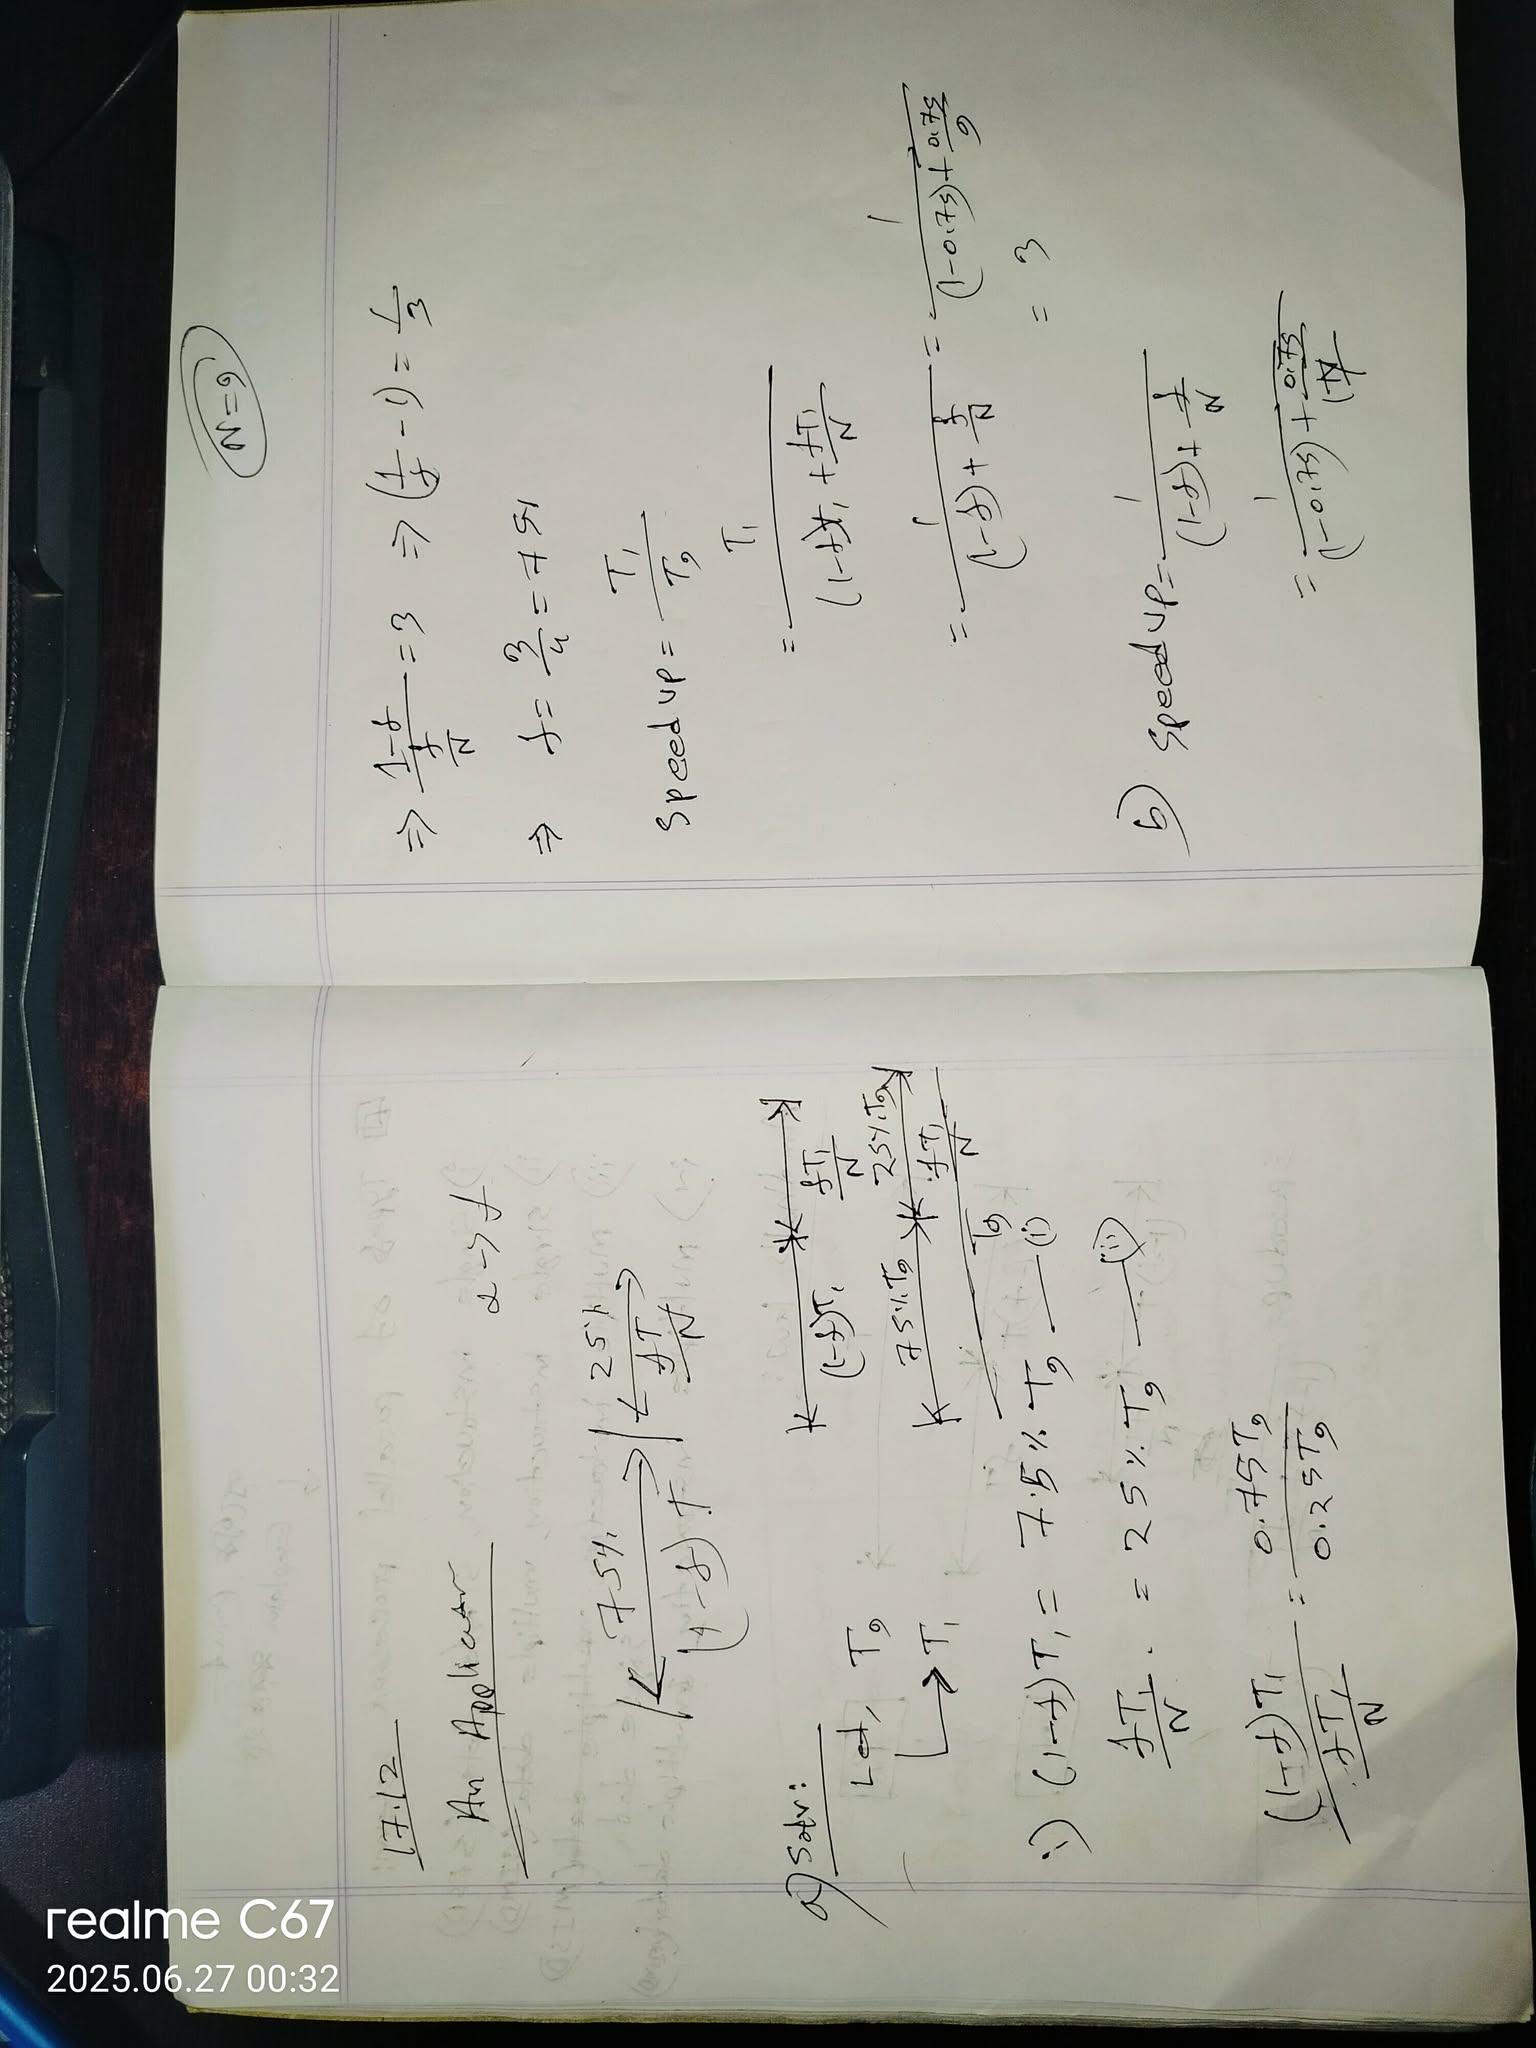 realme C67
2025.06.27 00:32
17.12
An Application
α → f
75% 25%
(1-f)T fT/N
a) Soln:
(1-f)T₁ fT₁/N
Let, T₉
→ T₁
75% T₉ 25% T₉
fT₁/N
T₉
i) (1-f)T₁ = 7.5% T₉ — (i)
fT₁/N . = 25% T₉ — (ii)
(1-f)T₁ / (fT₁/N) = 0.75T₉ / 0.25T₉
N=9
⇒ (1-f)/(f/N) = 3 ⇒ (1/f - 1) = 1/3
⇒ f = 3/4 = 75%
Speed up = T₁/T₉
= T₁ / ((1-f)T₁ + fT₁/N)
= 1 / ((1-f) + f/N) = 1 / ((1-0.75) + 0.75/9)
= 3
b) Speed up = 1 / ((1-f) + f/N)
= 1 / ((1-0.75) + 0.75/